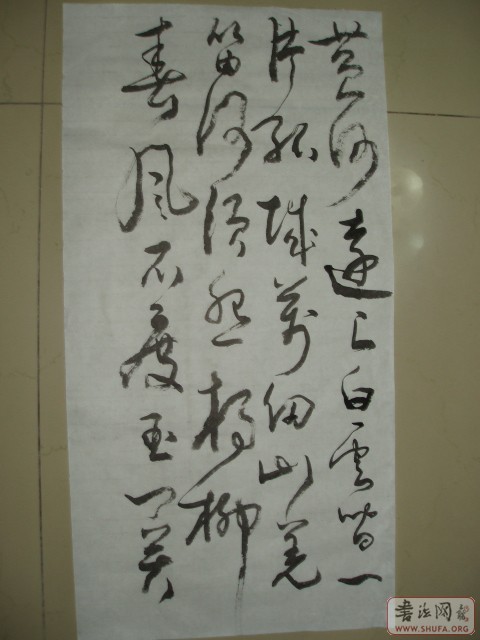 黄河遠上白雲間一
片孤城萬仞山羌
笛何須怨楊柳
春風不度玉门关
書法网
WWW.SHUFA.ORG